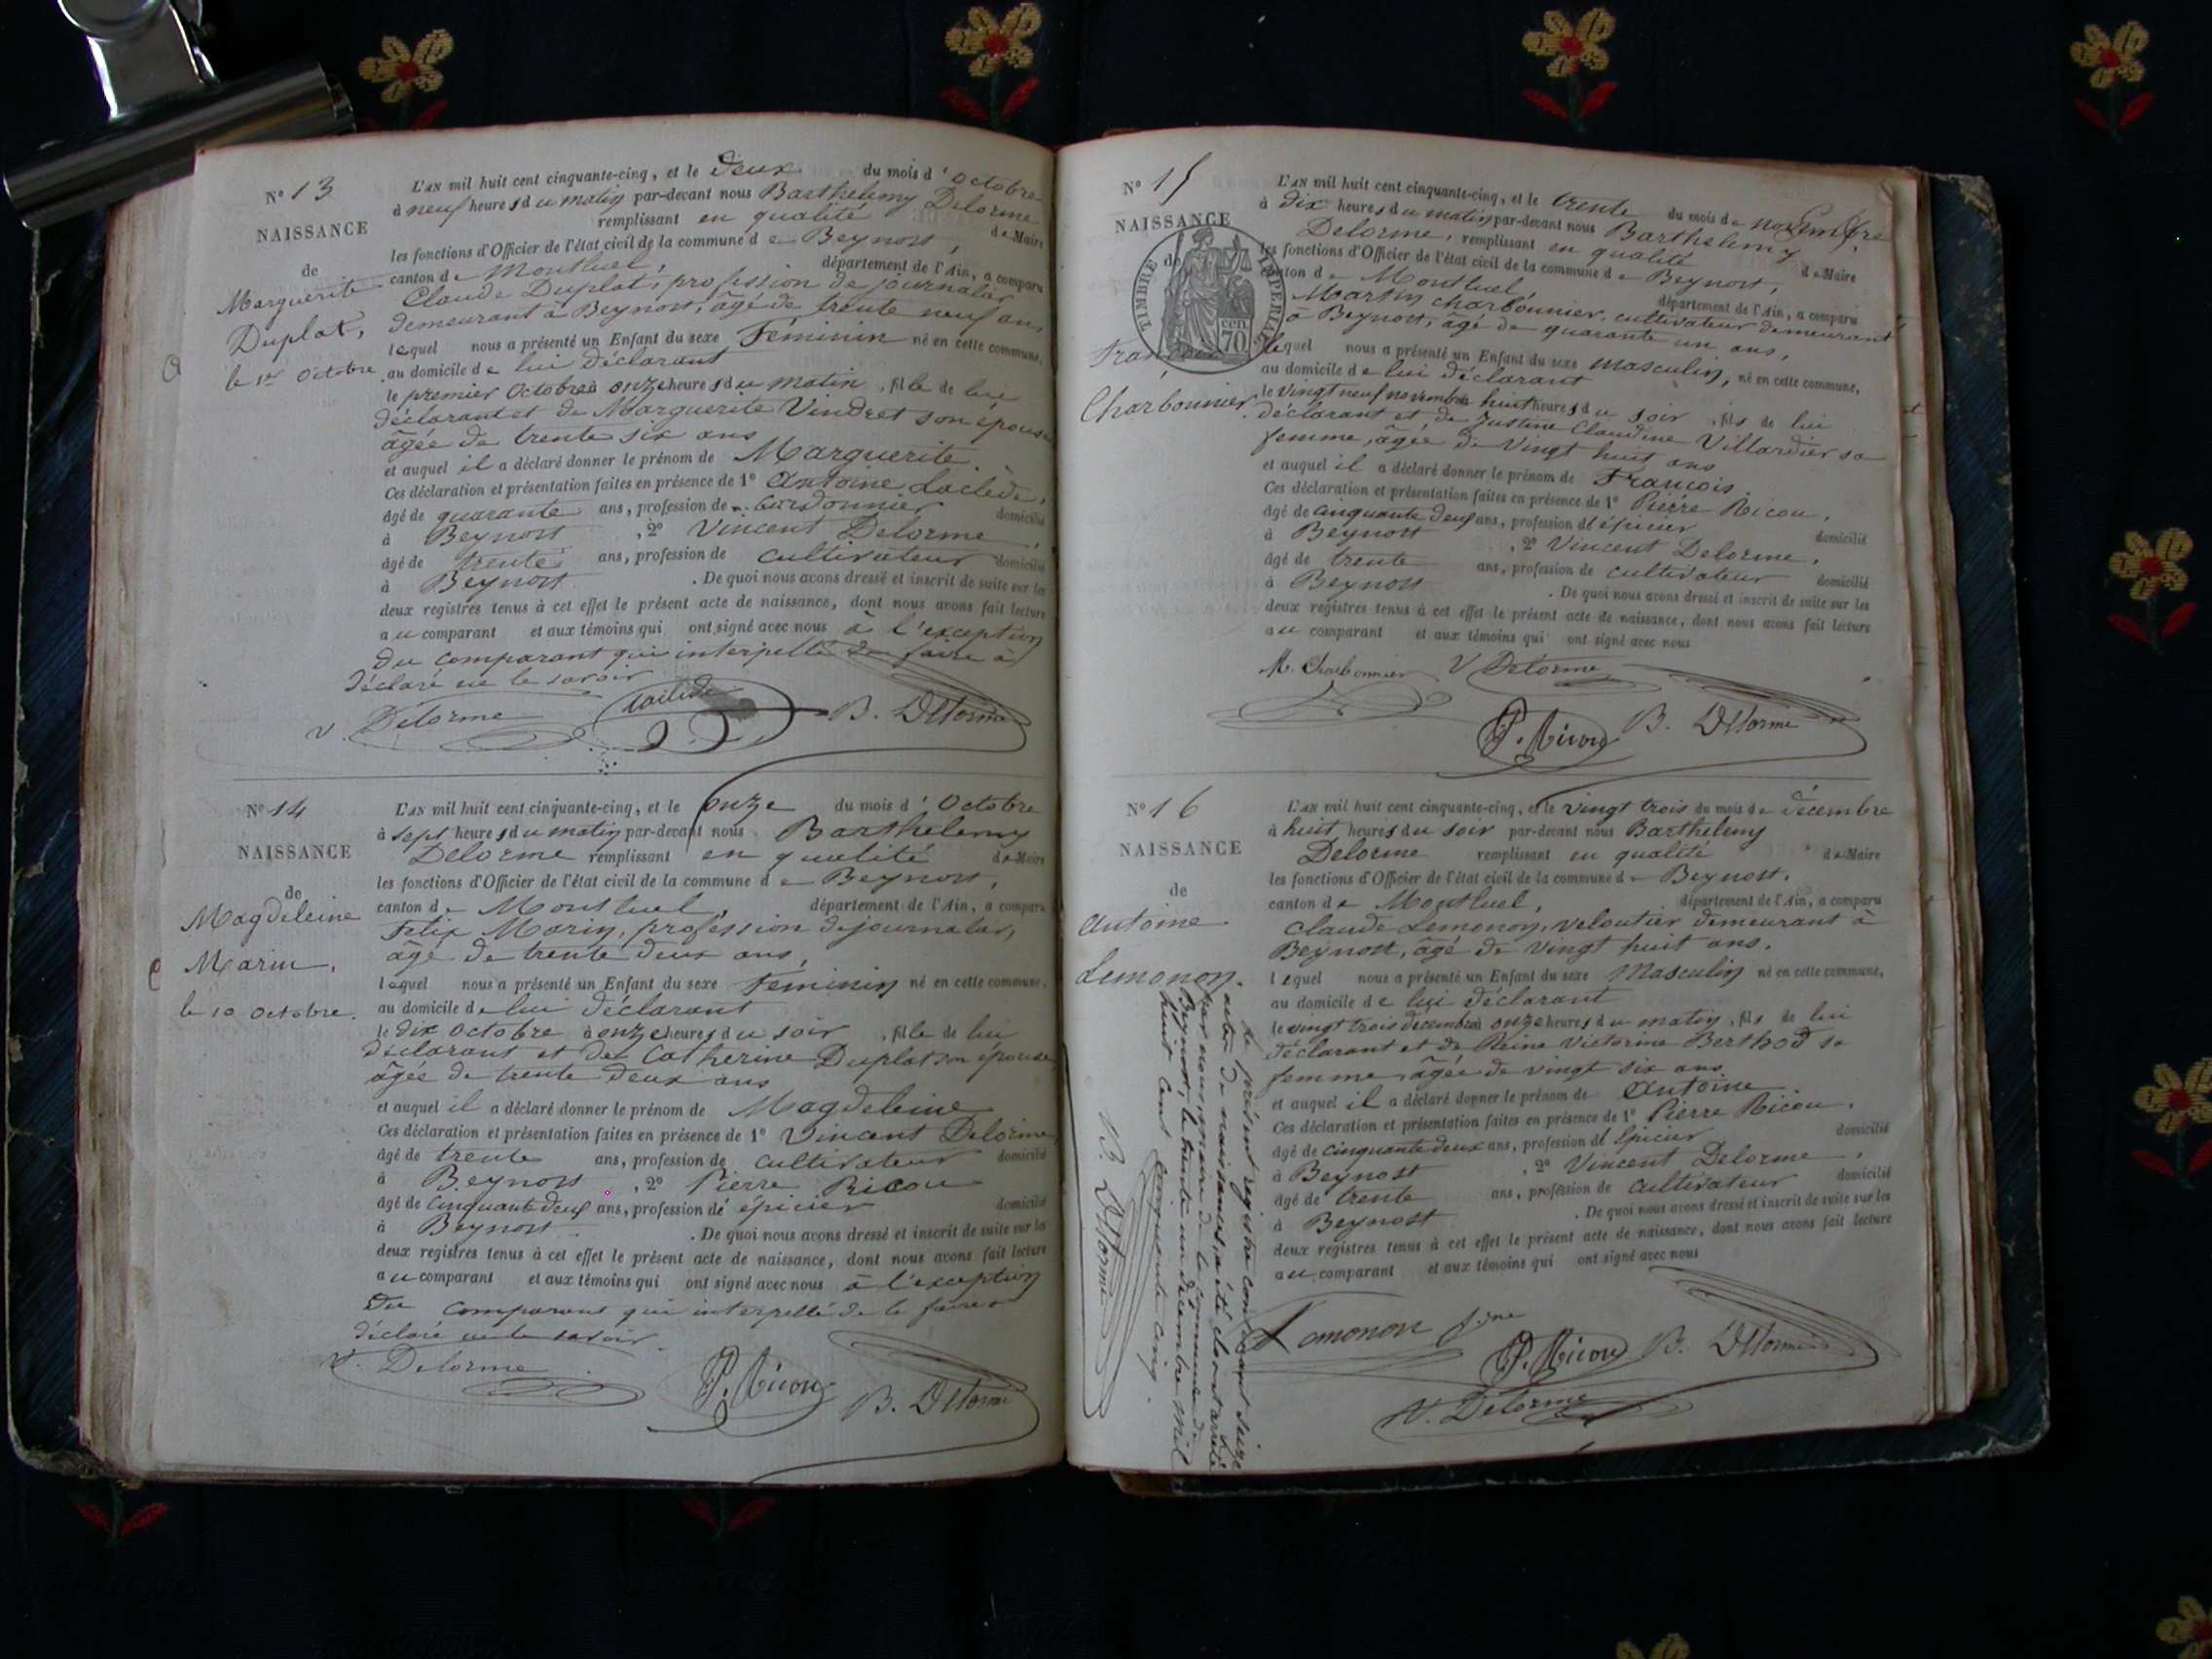 N° 13
NAISSANCE
de
Marguerite
Duplat,
le 1er Octobre
L'AN mil huit cent cinquante-cinq, et le Deux du mois d'Octobre
à neuf heures du matin par-devant nous Barthelemy Delorme
remplissant en qualité de Maire
les fonctions d'Officier de l'état civil de la commune de Beynost,
canton de Montluel, département de l'Ain, a comparu
Claude Duplat, profession de journalier
demeurant à Beynost, âgé de trente neuf ans,
lequel nous a présenté un Enfant du sexe Féminin né en cette commune,
au domicile de lui déclarant
le premier Octobre à onze heures du matin, fille de lui
déclarant et de Marguerite Vindret son épouse
âgée de trente six ans
et auquel il a déclaré donner le prénom de Marguerite.
Ces déclaration et présentation faites en présence de 1° Antoine Laclède,
âgé de quarante ans, profession de cordonnier domicilié
à Beynost, 2° Vincent Delorme,
âgé de trente ans, profession de cultivateur domicilié
à Beynost. De quoi nous avons dressé et inscrit de suite sur les
deux registres tenus à cet effet le présent acte de naissance, dont nous avons fait lecture
au comparant et aux témoins qui ont signé avec nous à l'exception
du comparant qui interpellé de faire a
déclaré ne le savoir
V. Delorme Laclède B. Delorme
N° 14
NAISSANCE
de
Magdeleine
Marin.
le 10 Octobre.
L'AN mil huit cent cinquante-cinq, et le onze du mois d'Octobre
à sept heures du matin par-devant nous Barthelemy
Delorme remplissant en qualité de Maire
les fonctions d'Officier de l'état civil de la commune de Beynost,
canton de Montluel, département de l'Ain, a comparu
Felix Marin, profession de journalier,
âgé de trente deux ans,
lequel nous a présenté un Enfant du sexe Féminin né en cette commune,
au domicile de lui déclarant
le dix Octobre à onze heures du soir, fille de lui
déclarant et de Catherine Duplat son épouse
âgée de trente deux ans
et auquel il a déclaré donner le prénom de Magdeleine
Ces déclaration et présentation faites en présence de 1° Vincent Delorme
âgé de trente ans, profession de cultivateur domicilié
à Beynost, 2° Pierre Ricou
âgé de cinquante deux ans, profession de épicier domicilié
à Beynost. De quoi nous avons dressé et inscrit de suite sur les
deux registres tenus à cet effet le présent acte de naissance, dont nous avons fait lecture
au comparant et aux témoins qui ont signé avec nous à l'exception
du comparant qui interpellé de le faire a
déclaré ne le savoir.
V. Delorme P. Ricou B. Delorme
N° 15
NAISSANCE
de
TIMBRE IMPERIAL
cen. 70
Charbonnier.
L'AN mil huit cent cinquante-cinq, et le trente du mois de novembre
à dix heures du matin par-devant nous Barthelemy
Delorme, remplissant en qualité de Maire
les fonctions d'Officier de l'état civil de la commune de Beynost,
canton de Montluel, département de l'Ain, a comparu
Martin Charbonnier, cultivateur demeurant
à Beynost, âgé de quarante un ans,
lequel nous a présenté un Enfant du sexe masculin, né en cette commune,
au domicile de lui déclarant
le vingt neuf novembre huit heures du soir, fils de lui
déclarant et de Justine Claudine Villardier sa
femme, âgée de vingt huit ans
et auquel il a déclaré donner le prénom de François
Ces déclaration et présentation faites en présence de 1° Pierre Ricou,
âgé de cinquante deux ans, profession d'épicier domicilié
à Beynost, 2° Vincent Delorme,
âgé de trente ans, profession de cultivateur domicilié
à Beynost. De quoi nous avons dressé et inscrit de suite sur les
deux registres tenus à cet effet le présent acte de naissance, dont nous avons fait lecture
au comparant et aux témoins qui ont signé avec nous
M. Charbonnier V Delorme
P. Ricou B. Delorme
N° 16
NAISSANCE
de
Antoine
Lemonon.
L'AN mil huit cent cinquante-cinq, et le vingt trois du mois de décembre
à huit heures du soir par-devant nous Barthelemy
Delorme remplissant en qualité de Maire
les fonctions d'Officier de l'état civil de la commune de Beynost,
canton de Montluel, département de l'Ain, a comparu
Claude Lemonon, veloutier demeurant à
Beynost, âgé de vingt huit ans,
lequel nous a présenté un Enfant du sexe Masculin né en cette commune,
au domicile de lui déclarant
le vingt trois décembre à onze heures du matin, fils de lui
déclarant et de Reine Victorine Berthod sa
femme, âgée de vingt six ans
et auquel il a déclaré donner le prénom de Antoine.
Ces déclaration et présentation faites en présence de 1° Pierre Ricou,
âgé de cinquante deux ans, profession d'Epicier domicilié
à Beynost, 2° Vincent Delorme,
âgé de trente ans, profession de cultivateur domicilié
à Beynost. De quoi nous avons dressé et inscrit de suite sur les
deux registres tenus à cet effet le présent acte de naissance, dont nous avons fait lecture
au comparant et aux témoins qui ont signé avec nous
Lemonon P. Ricou B. Delorme
V. Delorme
Le présent registre contenant seize
actes de naissances, a été clos et arrêté
par nous maire de la commune de
Beynost, le trente un décembre mil
huit cent cinquante cinq.
B. Delorme